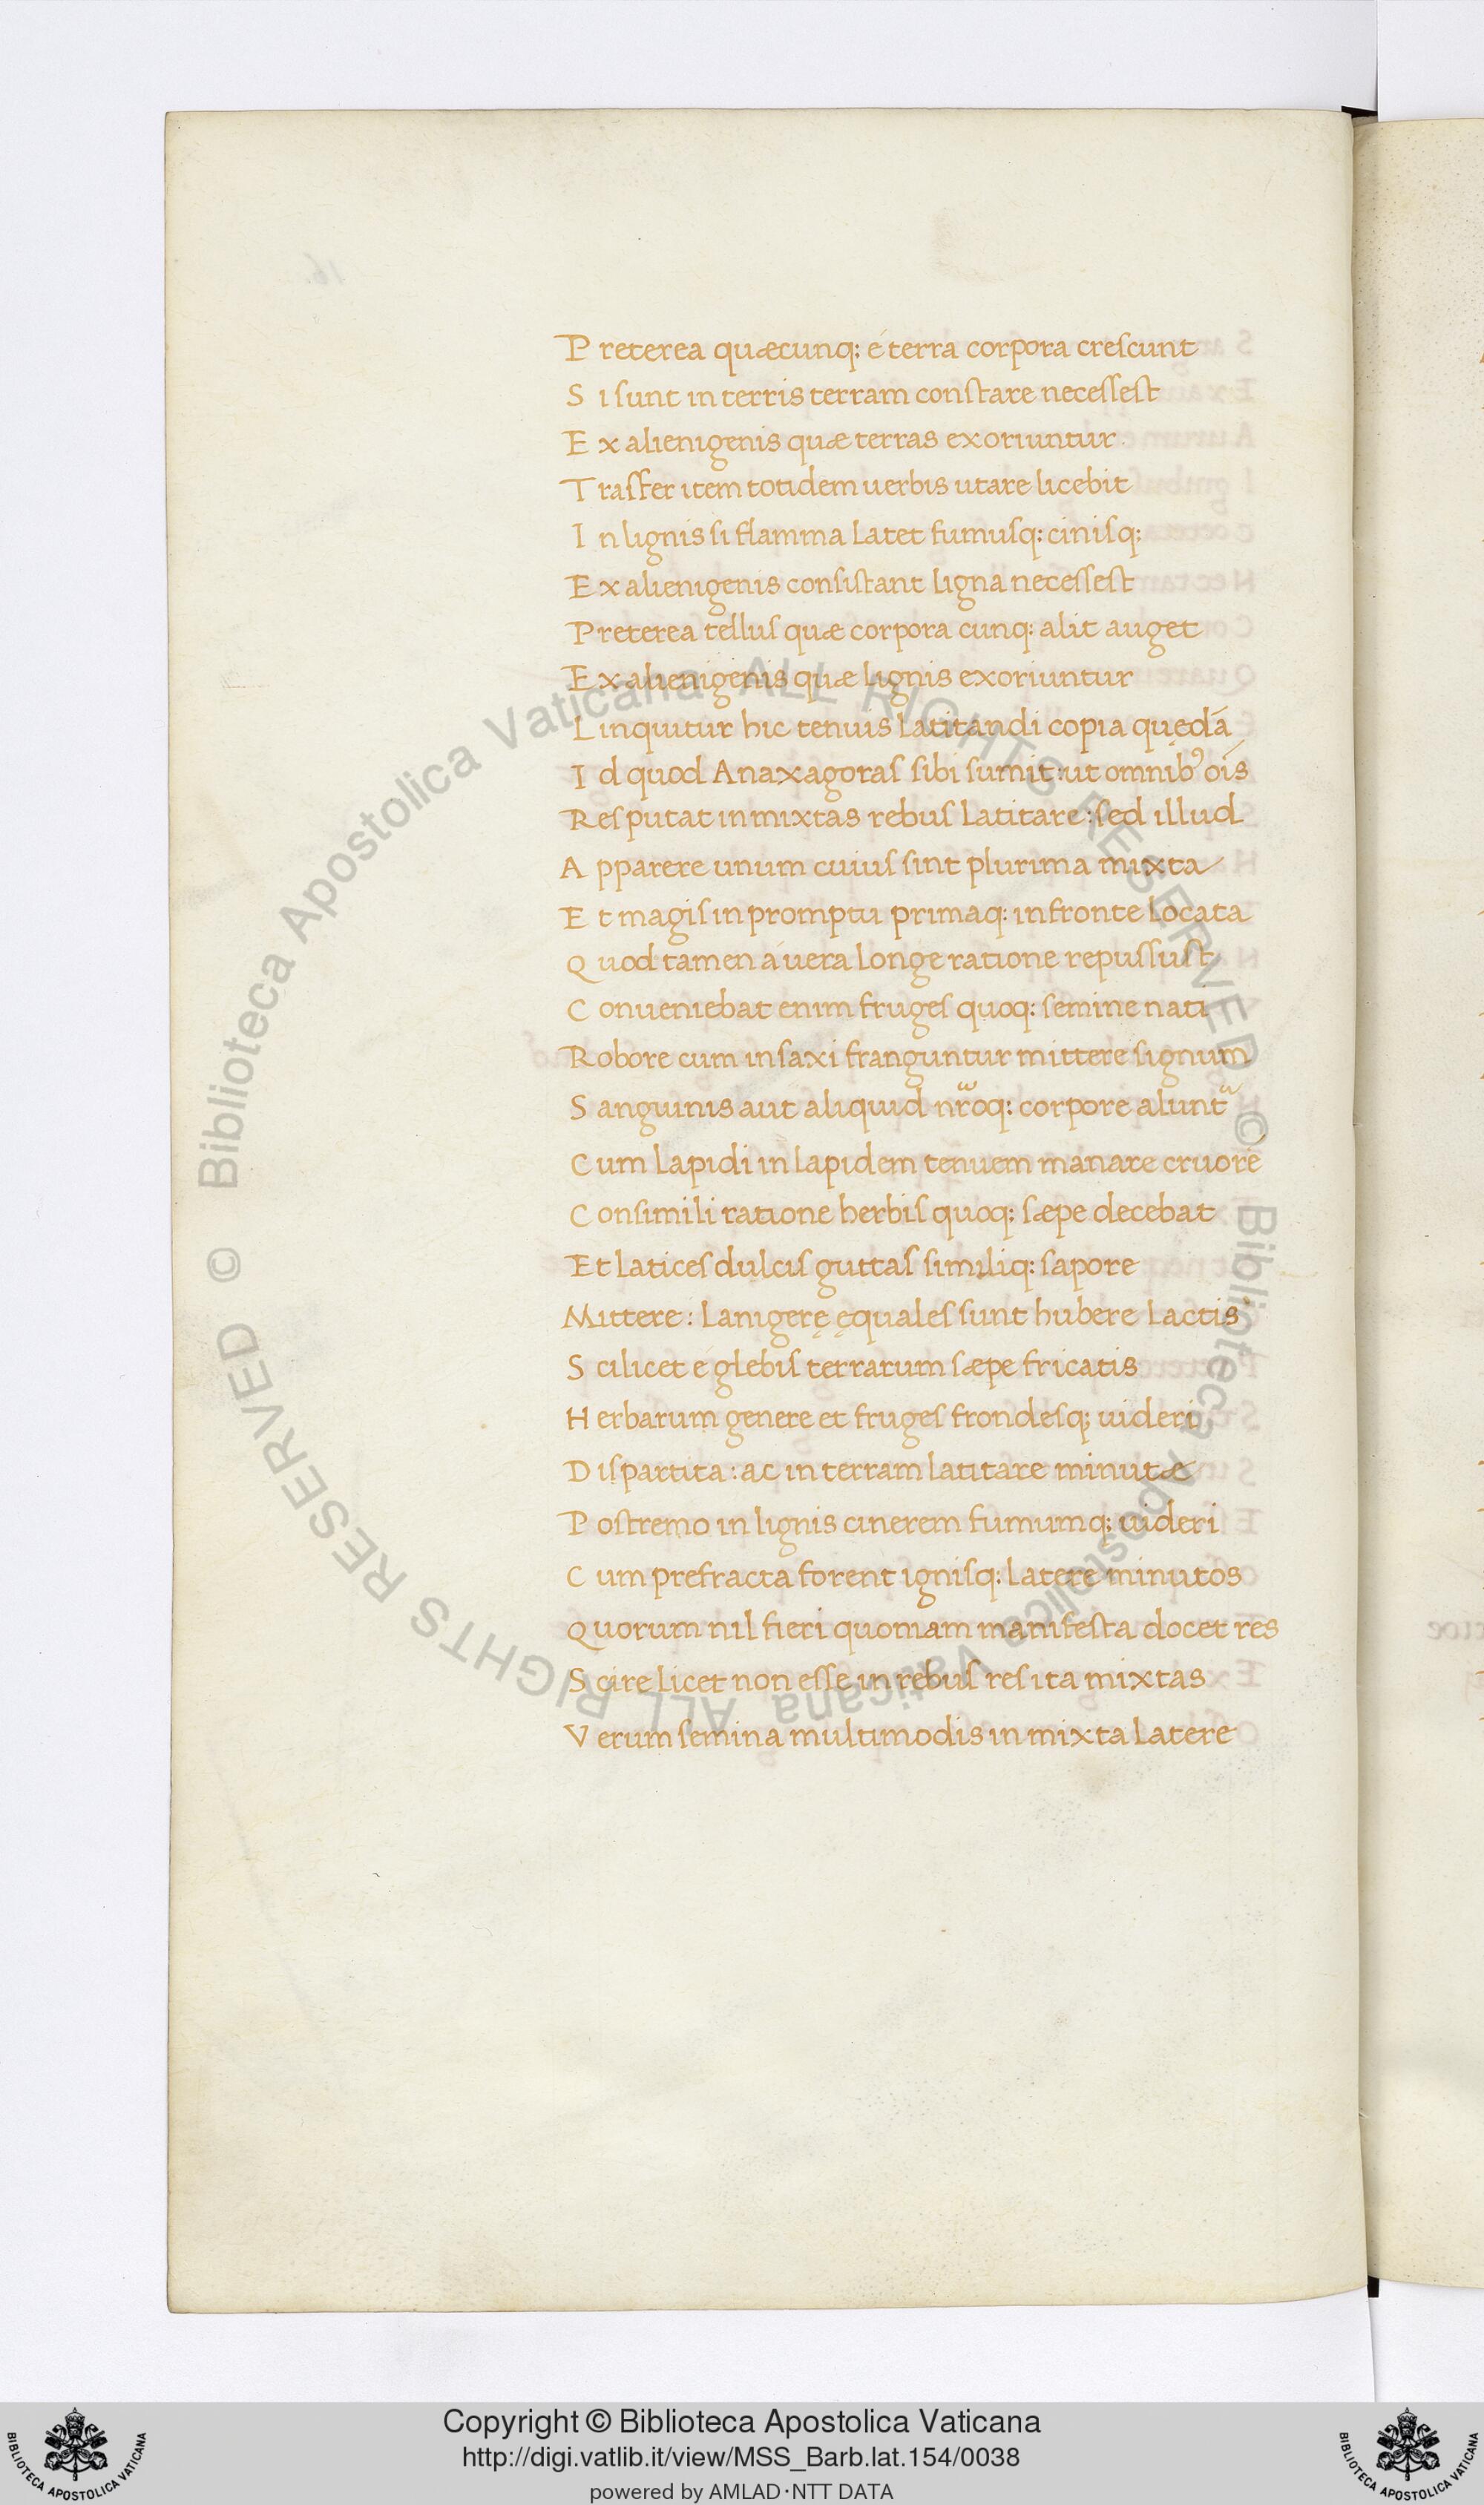 P reterea quæcunq: é terra corpora crescunt
S i sunt in terris terram constare necessest
E x alienigenis quæ terras exoriuntur
T rasfer item totidem uerbis utare licebit
I n lignis si flamma latet fumusq: cinisq:
E x alienigenis consistant ligna necessest
P reterea tellus quæ corpora cunq: alit auget
E x alienigenis quæ lignis exoriuntur
L inquitur hic tenuis latitandi copia quędā
I d quod Anaxagoras sibi sumit: ut omnibꝰ oīs
R es putat inmixtas rebus latitare: sed illud
A pparere unum cuius sint plurima mixta
E t magis in promptu primaq: in fronte locata
Q uod tamen á uera longe ratione repulsust
C onueniebat enim fruges quoq: semine nati
R obore cum in saxi franguntur mittere signum
S anguinis aut aliquid nr̄oq: corpore alunt᷑
C um lapidi in lapidem tenuem manare cruorē
C onsimili ratione herbis quoq: sæpe decebat
E t latices dulcis guttas similiq: sapore
M ittere: lanigerę ęquales sunt hubere lactis
S cilicet é glebis terrarum sæpe fricatis
H erbarum genere et fruges frondesq; uideri
D ispartita: ac in terram latitare minutæ
P ostremo in lignis cinerem fumumq; uideri
C um prefracta forent ignisq: latere minutos
Q uorum nil fieri quoniam manifesta docet res
S cire licet non esse in rebus res ita mixtas
V erum semina multimodis inmixta latere
© Biblioteca Apostolica Vaticana ALL RIGHTS RESERVED
© Biblioteca Apostolica Vaticana ALL RIGHTS RESERVED
Copyright © Biblioteca Apostolica Vaticana
http://digi.vatlib.it/view/MSS_Barb.lat.154/0038
powered by AMLAD·NTT DATA
BIBLIOTECA APOSTOLICA VATICANA
BIBLIOTECA APOSTOLICA VATICANA